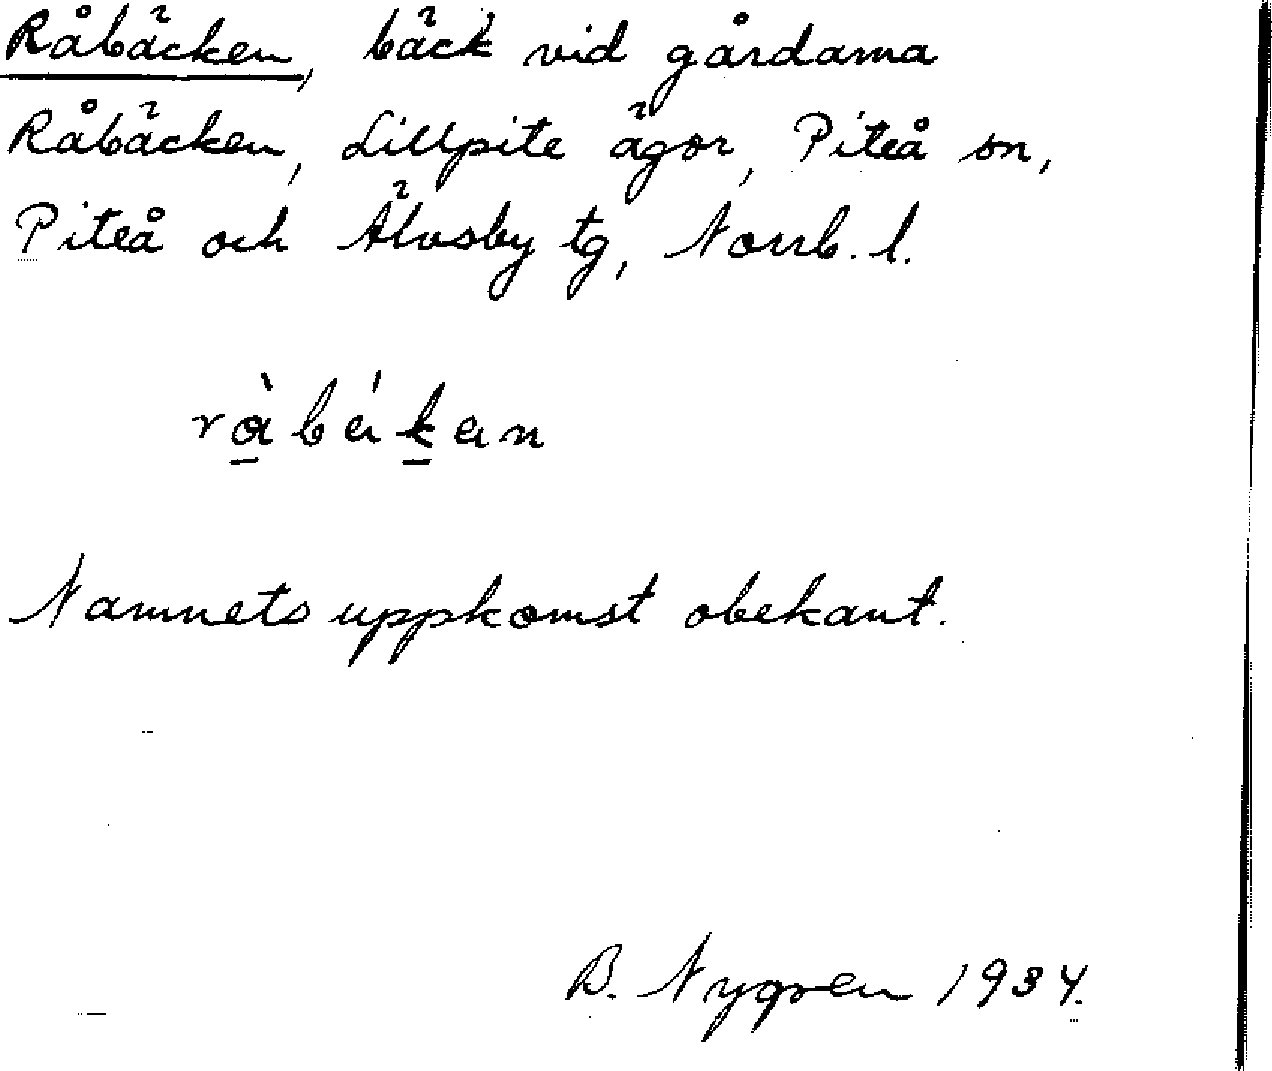 Råbäcken, bäck vid gårdarna
Råbäcken, Lillpite ägor, Piteå sn,
Piteå och Älvsby tg, Norrb. l.
Namnets uppkomst obekant.
B. Nygren 1934.